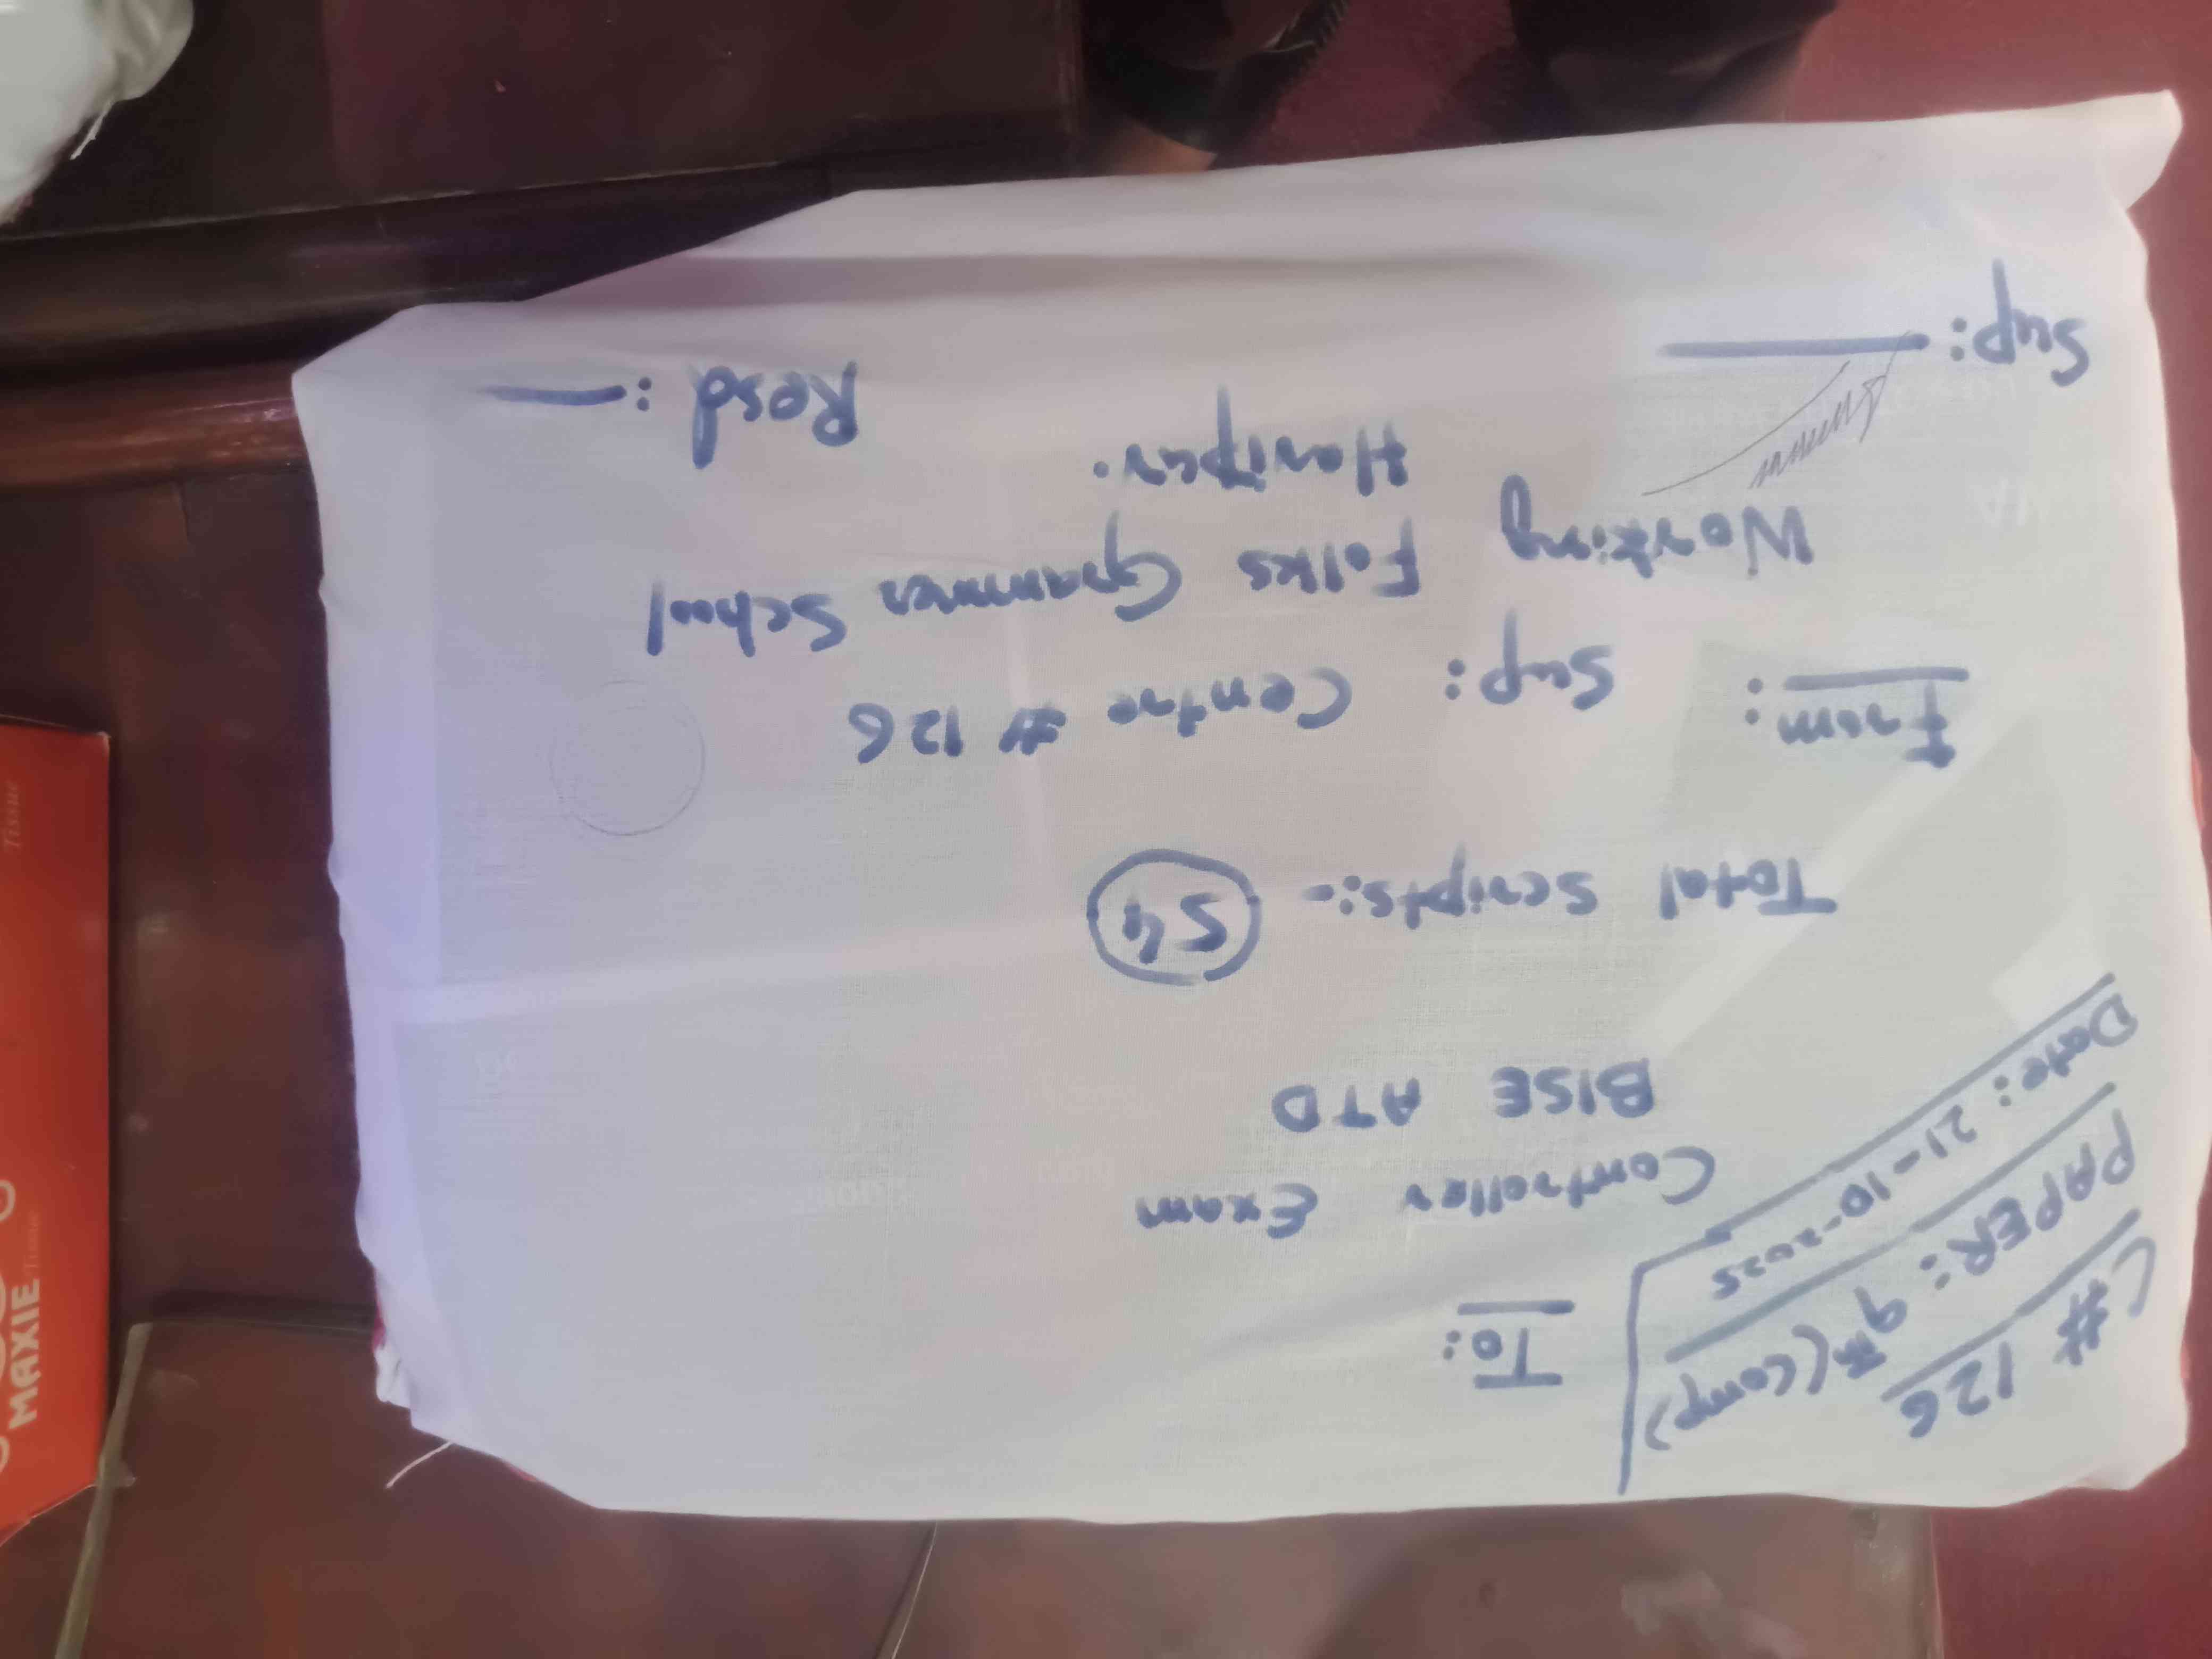 C# 126
PAPER: 9th (Comp)
Date: 21-10-2025
To:
Controller Exam
BISE ATD
Total Scripts:- 54
From: Sup: Centre # 126
Working Folks Grammer School
Haripur.
Sup: Resd:
MAXIE
Tissue
TISSUE